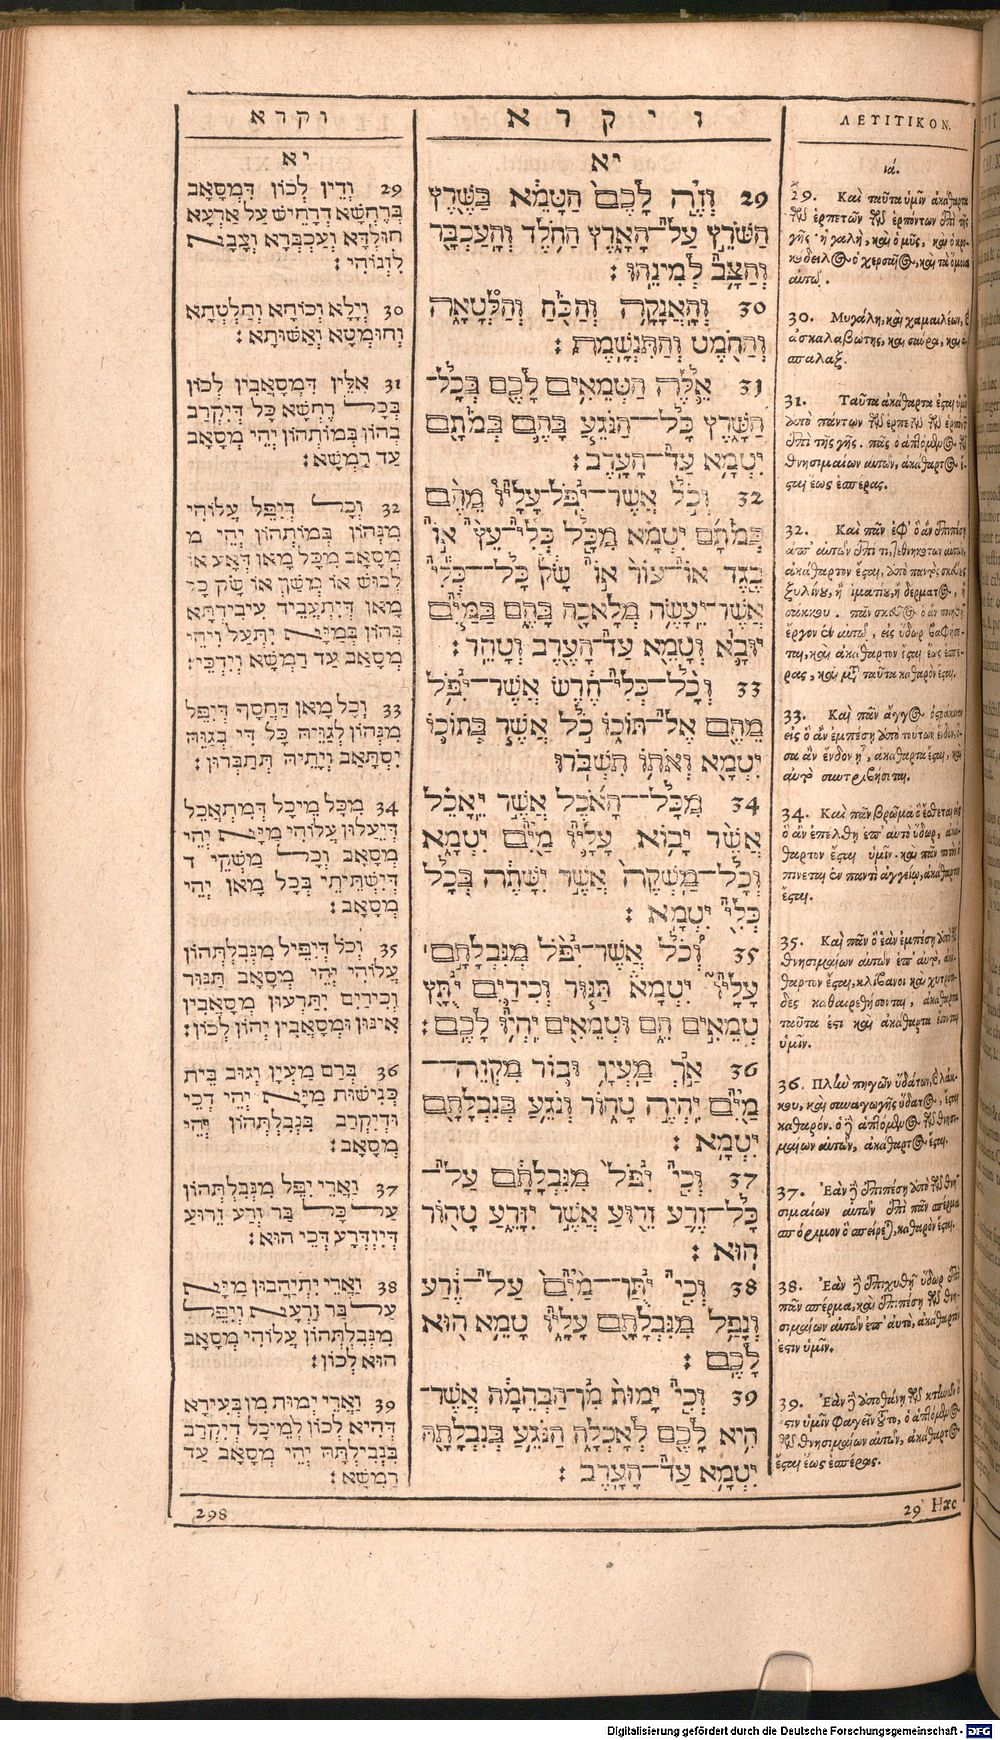 ויקרא
יא
29 וְדֵין לְכוֹן דִּמְסָאָב
בְּרִחֲשָׁא דְּרָחֵישׁ עַל אַרְעָא
חוּלְדָּא וְעַכְבְּרָא וְצָבָא
לִזְנוֹהִי:
30 וְיָלָא וְכוֹחָא וְחַלְטְתָא
וְחוּמְטָא וְאָשׁוּתָא:
31 אִלֵּין דִּמְסָאֲבִין לְכוֹן
בְּכָל רִחֲשָׁא כָּל דְּיִקְרַב
בְּהוֹן בְּמוֹתְהוֹן יְהֵי מְסָאָב
עַד רַמְשָׁא:
32 וְכָל דְּיִפֵּל עֲלוֹהִי
מִנְּהוֹן בְּמוֹתְהוֹן יְהֵי מ
מְסָאָב מִכָּל מָאן דְּאָע אוֹ
לְבוּשׁ אוֹ מְשַׁךְ אוֹ שָׂק כָּל
מָאן דְּיִתְעֲבֵיד עִיבִידְתָּא
בְּהוֹן בְּמַיָּא יִתָּעַל וִיהֵי
מְסָאָב עַד רַמְשָׁא וְיִדְכֵּי:
33 וְכָל מָאן דַּחֲסַף דְּיִפֵּל
מִנְּהוֹן לְגַוֵּיהּ כָּל דִּי בְגַוֵּיהּ
יִסְתָּאַב וְיָתֵיהּ תִּתְבְּרוּן:
34 מִכָּל מֵיכַל דְּמִתְאֲכֵל
דְּיֵעֲלוּן עֲלוֹהִי מַיָּא יְהֵי
מְסָאָב וְכָל מַשְׁקֵי ד
דְּיִשְׁתֵּיתִי בְּכָל מָאן יְהֵי
מְסָאָב:
35 וְכֹל דְּיִפֵּיל מִנְּבִלְתְּהוֹן
עֲלוֹהִי יְהֵי מְסָאָב תַּנּוּר
וְכִירַיִם יִתָּרְעוּן מְסָאֲבִין
אִינּוּן וּמְסָאֲבִין יְהוֹן לְכוֹן:
36 בְּרַם מַעְיָן וְגוּב בֵּית
כְּנִישׁוּת מַיָּא יְהֵי דְכֵי
וּדְיִקְרַב בִּנְבִלְתְּהוֹן יְהֵי
מְסָאָב:
37 וַאֲרֵי יִפֵּל מִנְּבִלְתְּהוֹן
עַל כָּל בַּר זְרַע זֵרוּעַ
דְּיִזְדְּרַע דְּכֵי הוּא:
38 וַאֲרֵי יִתְיַהֲבוּן מַיָּא
עַל בַּר זַרְעָא וְיִפֵּל
מִנְּבִלְתְּהוֹן עֲלוֹהִי מְסָאָב
הוּא לְכוֹן:
39 וַאֲרֵי יְמוּת מִן בְּעִירָא
דְּהִיא לְכוֹן לְמֵיכַל דְּיִקְרַב
בִּנְבֵילְתַּהּ יְהֵי מְסָאָב עַד
רַמְשָׁא:
298
ויקרא
יא
29 וְזֶה לָכֶם הַטָּמֵא בַּשֶּׁרֶץ
הַשֹּׁרֵץ עַל־הָאָרֶץ הַחֹלֶד וְהָעַכְבָּר
וְהַצָּב לְמִינֵהוּ:
30 וְהָאֲנָקָה וְהַכֹּחַ וְהַלְּטָאָה
וְהַחֹמֶט וְהַתִּנְשָׁמֶת:
31 אֵלֶּה הַטְּמֵאִים לָכֶם בְּכָל־
הַשָּׁרֶץ כָּל־הַנֹּגֵעַ בָּהֶם בְּמֹתָם
יִטְמָא עַד־הָעָרֶב:
32 וְכֹל אֲשֶׁר־יִפֹּל־עָלָיו מֵהֶם
בְּמֹתָם יִטְמָא מִכָּל כְּלִי־עֵץ אוֹ
בֶגֶד אוֹ־עוֹר אוֹ שָׂק כָּל־כְּלִי
אֲשֶׁר־יֵעָשֶׂה מְלָאכָה בָּהֶם בַּמַּיִם
יוּבָא וְטָמֵא עַד־הָעֶרֶב וְטָהֵר:
33 וְכָל־כְּלִי־חֶרֶשׂ אֲשֶׁר־יִפֹּל
מֵהֶם אֶל־תּוֹכוֹ כֹּל אֲשֶׁר בְּתוֹכוֹ
יִטְמָא וְאֹתוֹ תִשְׁבֹּרוּ
34 מִכָּל־הָאֹכֶל אֲשֶׁר יֵאָכֵל
אֲשֶׁר יָבוֹא עָלָיו מַיִם יִטְמָא
וְכָל־מַשְׁקֶה אֲשֶׁר יִשָּׁתֶה בְּכָל
כְּלִי יִטְמָא:
35 וְכֹל אֲשֶׁר־יִפֹּל מִנִּבְלָתָם
עָלָיו יִטְמָא תַּנּוּר וְכִירַיִם יֻתָּץ
טְמֵאִים הֵם וּטְמֵאִים יִהְיוּ לָכֶם:
36 אַךְ מַעְיָן וּבוֹר מִקְוֵה־
מַיִם יִהְיֶה טָהוֹר וְנֹגֵעַ בְּנִבְלָתָם
יִטְמָא:
37 וְכִי יִפֹּל מִנִּבְלָתָם עַל־
כָּל־זֶרַע זֵרוּעַ אֲשֶׁר יִזָּרֵעַ טָהוֹר
הוּא:
38 וְכִי יֻתַּן־מַיִם עַל־זֶרַע
וְנָפַל מִנִּבְלָתָם עָלָיו טָמֵא הוּא
לָכֶם:
39 וְכִי יָמוּת מִן־הַבְּהֵמָה אֲשֶׁר־
הִיא לָכֶם לְאָכְלָה הַנֹּגֵעַ בְּנִבְלָתָהּ
יִטְמָא עַד־הָעָרֶב:
ΛΕΥΙΤΙΚΟΝ.
ιά.
29. Καὶ ταῦτα ὑμῖν ἀκάθαρτα
τῶν ἑρπετῶν τῶν ἑρπόντων ἐπὶ τῆς
γῆς· ἡ γαλῆ, καὶ ὁ μῦς, καὶ ὁ κρο-
κόδειλος ὁ χερσαῖος, καὶ τὰ ὅμοια
αὐτῷ.
30. Μυγάλη, καὶ χαμαιλέων,
ἀσκαλαβώτης, καὶ σαύρα, καὶ ἀ-
σπάλαξ.
31. Ταῦτα ἀκάθαρτα ἔσται ὑμῖν
ἀπὸ πάντων τῶν ἑρπετῶν τῶν ἑρπόντων
ἐπὶ τῆς γῆς. πᾶς ὁ ἁπτόμενος τῶν
θνησιμαίων αὐτῶν, ἀκάθαρτος ἔ-
σται ἕως ἑσπέρας.
32. Καὶ πᾶν ἐφ' ὃ ἂν ἐπιπέσῃ
ἀπ' αὐτῶν ἐπί τι, τεθνηκότων αὐτῶν,
ἀκάθαρτον ἔσται, ἀπὸ παντὸς σκεύους
ξυλίνου, ἢ ἱματίου, ἢ δέρματος, ἢ
σάκκου. πᾶν σκεῦος ὃ ἂν ποιηθῇ
ἔργον ἐν αὐτῷ, εἰς ὕδωρ βαφήσε-
ται, καὶ ἀκάθαρτον ἔσται ἕως ἑσπέ-
ρας, καὶ μετὰ ταῦτα καθαρὸν ἔσται.
33. Καὶ πᾶν ἄγγος ὀστράκινον
εἰς ὃ ἂν ἐμπέσῃ ἀπὸ τούτων ἔνδον, ὅ-
σα ἂν ἔνδον ᾖ, ἀκάθαρτα ἔσται, καὶ
αὐτὸ συντριβήσεται.
34. Καὶ πᾶν βρῶμα ὃ ἔσθεται, εἰς
ὃ ἂν ἐπέλθῃ ἐπ' αὐτὸ ὕδωρ, ἀκά-
θαρτον ἔσται ὑμῖν. καὶ πᾶν ποτὸν ὃ
πίνεται ἐν παντὶ ἀγγείῳ, ἀκάθαρτον
ἔσται.
35. Καὶ πᾶν ὃ ἐὰν ἐμπέσῃ ἀπὸ τῶν
θνησιμαίων αὐτῶν ἐπ' αὐτὸ, ἀκά-
θαρτον ἔσται, κλίβανοι καὶ χυτρόπο-
δες καθαιρεθήσονται, ἀκάθαρτα
ταῦτά ἐστι καὶ ἀκάθαρτα ἔσονται
ὑμῖν.
36. Πλὴν πηγῶν ὑδάτων, καὶ λάκ-
κου, καὶ συναγωγῆς ὕδατος, ἔσται
καθαρόν. ὁ δὲ ἁπτόμενος τῶν θνησι-
μαίων αὐτῶν, ἀκάθαρτος ἔσται.
37. Ἐὰν δὲ ἐπιπέσῃ ἀπὸ τῶν θνη-
σιμαίων αὐτῶν ἐπὶ πᾶν σπέρμα
σπόριμον ὃ σπείρεται, καθαρὸν ἔσται.
38. Ἐὰν δὲ ἐπιχυθῇ ὕδωρ ἐπὶ
πᾶν σπέρμα, καὶ ἐπιπέσῃ τῶν θνη-
σιμαίων αὐτῶν ἐπ' αὐτὸ, ἀκάθαρτόν
ἐστιν ὑμῖν.
39. Ἐὰν δὲ ἀποθάνῃ τῶν κτηνῶν ὅ
ἐστιν ὑμῖν φαγεῖν τοῦτο, ὁ ἁπτόμενος
τῶν θνησιμαίων αὐτῶν, ἀκάθαρτος
ἔσται ἕως ἑσπέρας.
29 Hæc
Digitalisierung gefördert durch die Deutsche Forschungsgemeinschaft - DFG